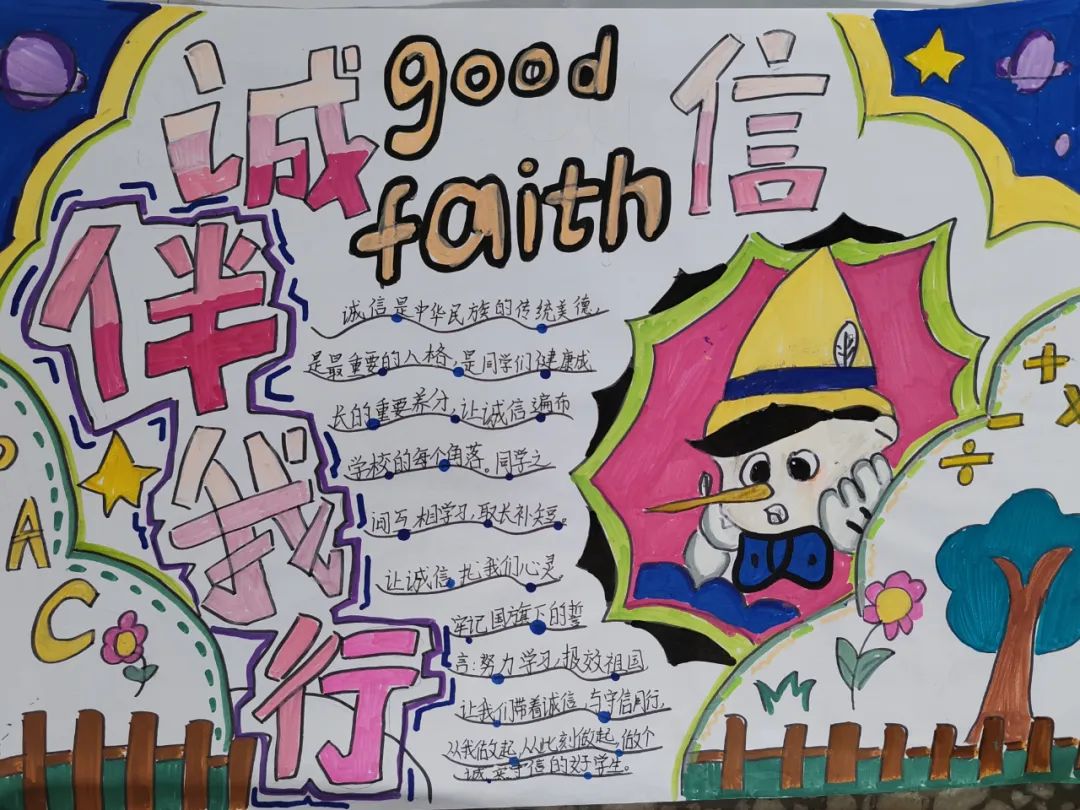 诚信
good
faith
伴我行
诚信是中华民族的传统美德,
是最重要的人格,是同学们健康成
长的重要养分,让诚信遍布
学校的每个角落。同学之
间互相学习,取长补短。
让诚信扎我们心灵,
牢记国旗下的誓
言:努力学习,报效祖国
让我们带着诚信,与守信同行,
从我做起,从此刻做起,做个
诚实守信的好学生。
A
C
+
-
x
÷